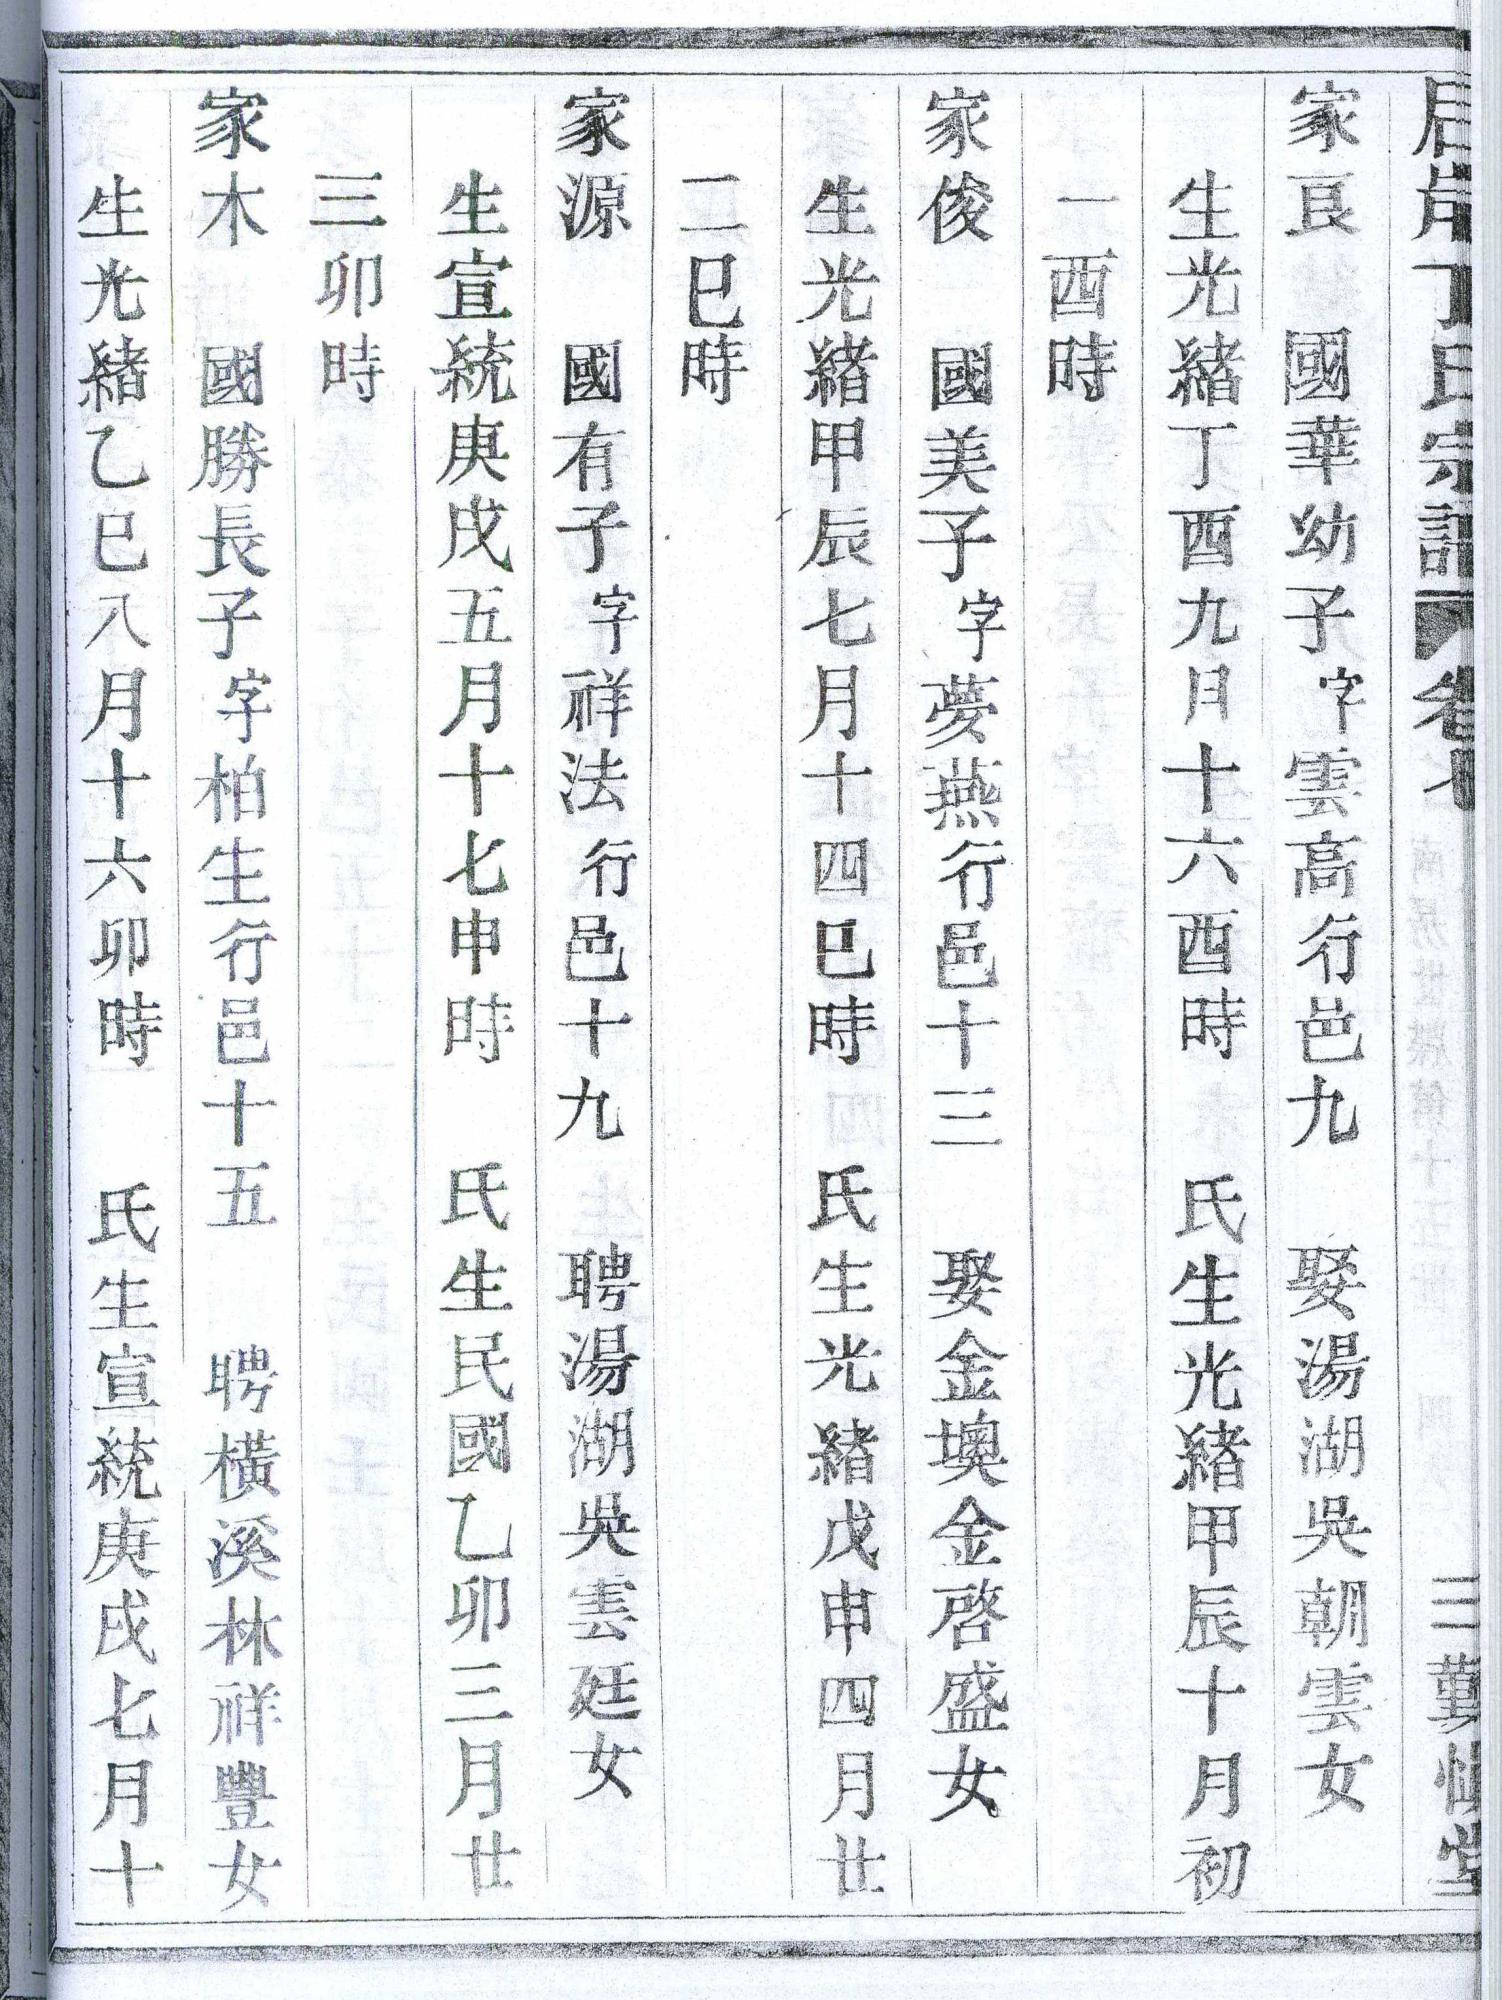 丁氏宗譜 卷 三勤慎堂
家良 國華幼子字雲高行邑九 娶湯湖吳朝雲女
生光緒丁酉九月十六酉時 氏生光緒甲辰十月初
一酉時
家俊 國美子字夢燕行邑十三 娶金墺金啓盛女
生光緒甲辰七月十四巳時 氏生光緒戊申四月廿
二巳時
家源 國有子字祥法行邑十九 聘湯湖吳雲廷女
生宣統庚戌五月十七申時 氏生民國乙卯三月廿
三卯時
家木 國勝長子字柏生行邑十五 聘橫溪林祥豐女
生光緒乙巳八月十六卯時 氏生宣統庚戌七月十